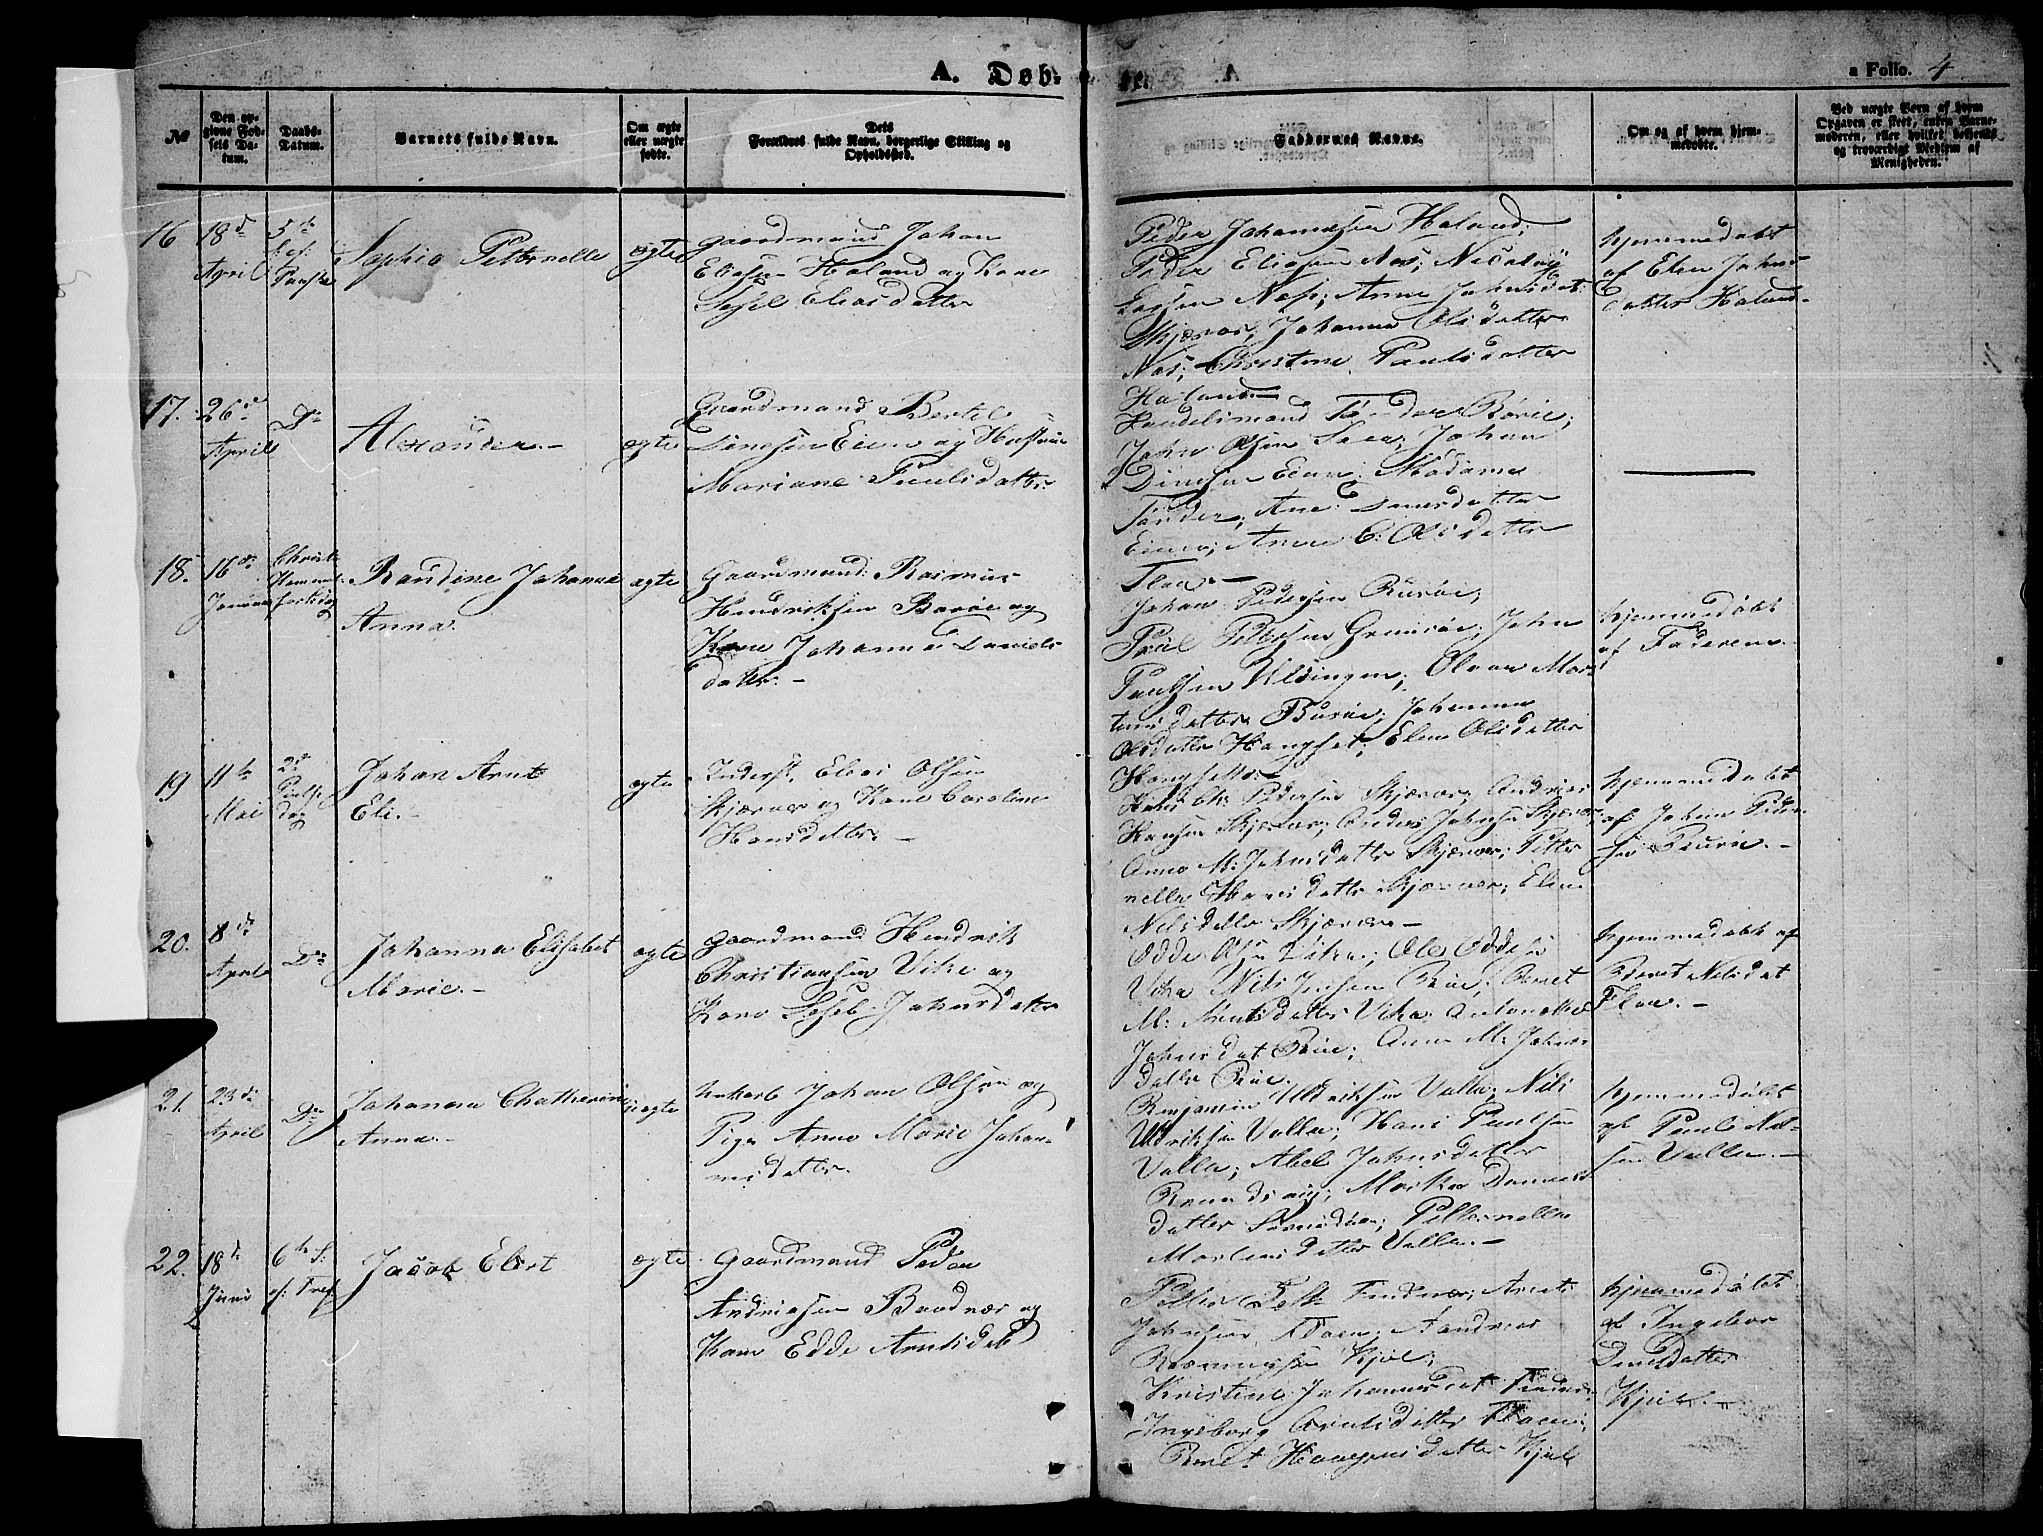 A. Døb-
te.
a Folio. 4
№
Den op-
givne Fød-
sels Da-
tum.
Daabs-
Datum.
Barnets fulde Navn.
Om ægte
eller uægte
fødte.
Dets
Forældres fulde Navn, borgerlige Stilling og
Opholdssted.
Faddernes Navne.
Om og af hvem hjem-
medøbt.
Ved uægte Børn af hvem
Opgaven er skeet, enten Barne-
moderen, eller hvilket bekjendt
og troværdigt Medlem af
Menigheden.
16
18de
April
5te
Paaske
Sophia Petternella
ægte
Gaardmand Johan
Eliasen Haland og Kone
Sesel Eliasdatter
Peder Johannesen Haland;
Peder Eliasen Nøs; Nicolay
Larsen Næss; Anne Johnsdat:
Skjærvær; Johanna Olsdatter
Nøs; Christine Paulsdatter
Haland
hjemmedøbt
af Elen Johns-
datter Haland
17.
26de
April
Do
Alexander.
ægte
Gaardmand Bertel
Eien og Hustrue
Mariane Paulsdatter
Handelsmand Tønder Børøe;
John Olsen Johan
Eien; Madame
Tønder; Ane
Anne C. Olsdatter
Floa.
18.
16de
Januar
Christi
Himmel-
fartsdag
Randine Johanna
Anna.
ægte
Gaardmand Rasmus
Hendriksen Burøe og
Kone Johanna Daniels
datter.
Johan Pedersen Burøe;
Paul Pettersen Grimsøe; John
Paulsen Ulvingen; Olava Mor-
tensdatter Burøe; Johanna
Olsdatter Hongset; Elen Olsdatter
Hongset.
hjemmedøbt
af Faderen
19
11te
Mai
2d
Pintse
dag
Johan Arnt
Eli.
ægte
Inderst Elias Olsen
Skjærvær og Kone Caroline
Hansdatter
Hans Chr. Pedersen Skjærvær; Andreas
Hansen Skjærvær; Anders Johnsen Skjærvær;
Anne M. Johnsdatter Skjærvær; Petter
nella Hansdatter Skjærvær; Elen
Nilsdatter Skjærvær
hjemmedøbt
af Johan Peder
sen Burøe.
20.
8de
April
Do
Johanna Elisabet
Marie.
ægte
Gaardmand Hendrik
Christiansen Vika og
Kone Sesel Johnsdatter
Odde Olsen Vika; Ole Oddesen
Vika Nils Jensen Bøe; Beret
M. Arntsdatter Vika;
Johnsdat Bøe; Anne M. Johns-
datter Bøe
hjemmedøbt af
Beret Nilsdat
Floa.
21.
23de
April
Do
Johanna Chatherine
Anna.
uægte
Johan Olsen og
Pige Anne Marie Johan-
nesdatter.
Benjamin Uldriksen Valla; Nils
Uldriksen Valla; Hans Paulsen
Valla; Abel Johnsdatter
Daniels
datter Petternella
Mortensdatter Valla.
hjemmedøbt
af Paul Nil-
sen Valla.
22.
18de
Juni
6te S.
ef: Tref.
Jacob Elert
ægte
Gaardmand Peder
Andreasen Baadnæs og
Kone Edde Arntsdat
Petter Falk Arnt
Johnsen Floen; Andreas
Rasmussen Kjøl;
Kristine Johannesdat
Ingeborg Arntsdatter Floen;
Beret Haagensdatter Kjøl
hjemmedøbt
af Ingebor
Kjøl.